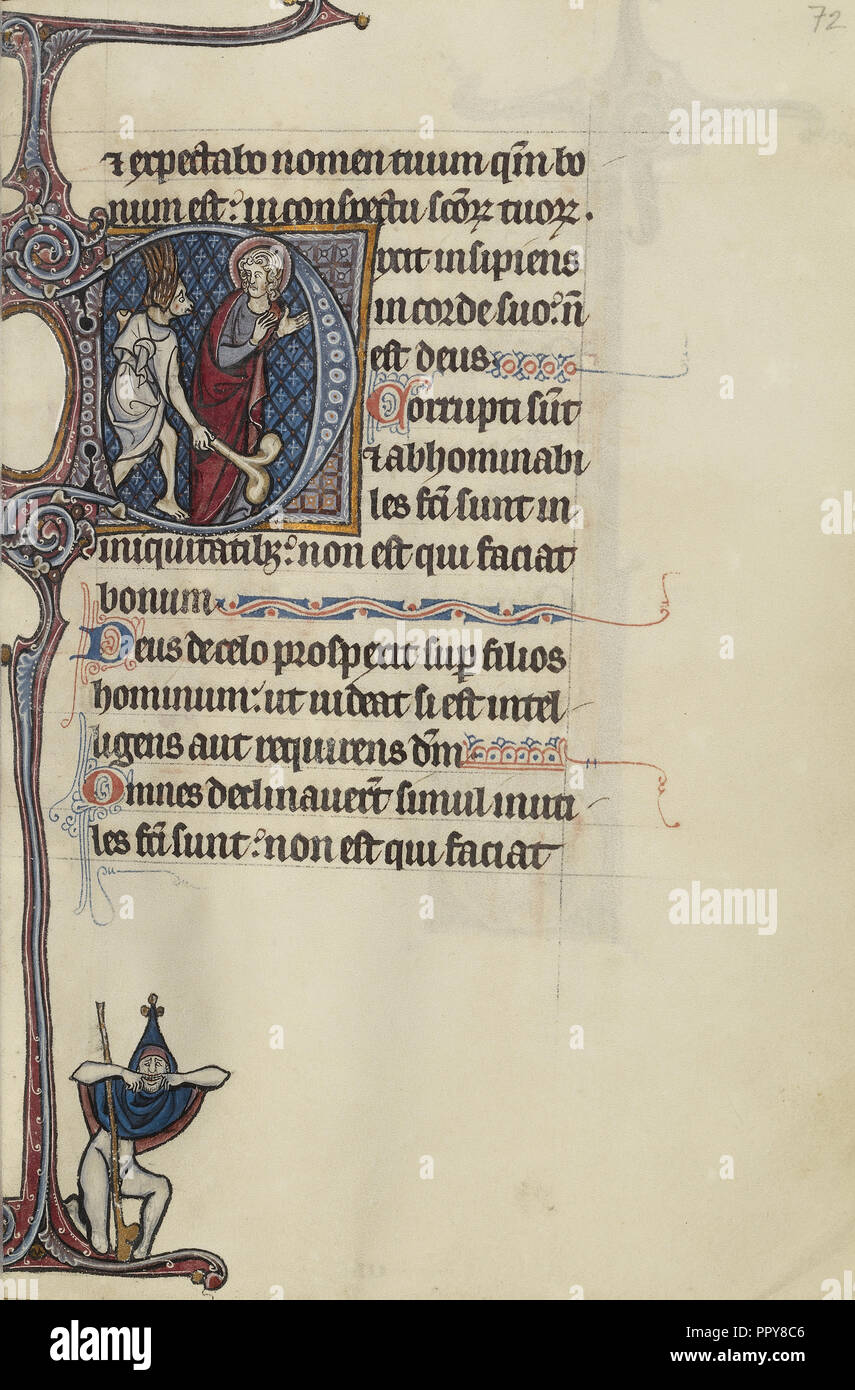 72
⁊ expectabo nomen tuum qm̄ bo
num est: in conspectu scōꝝ tuoꝝ.
Dixit insipiens
in corde suo: n̄
est deus
Corrupti sūt
⁊ abhominabi
les fc̄i sunt in
iniquitatibꝫ: non est qui faciat
bonum
Deus de celo prospexit sup̄ filios
hominum: ut uideat si est intel
ligens aut requirens dm̄
Omnes declinauer̄t simul inuti
les fc̄i sunt: non est qui faciat
a
alamy
alamy
Image ID: PPY8C6
www.alamy.com